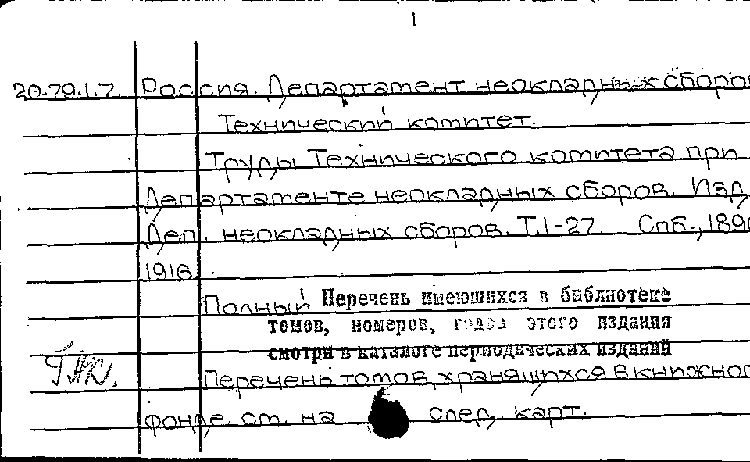 1
20.79.1.7 Россия. Департамент неокладных сборов
Технический комитет.
Труды Технического комитета при
Департаменте неокладных сборов. Изд.
Деп. неокладных сборов. Т.1-27 Спб., 189
1916.
Полный Перечень имеющихся в библиотеке
томов, номеров, годов этого издания
смотри в каталоге периодических изданий
Перечень томов, хранящихся в книжно
фонде, см. на след. карт.